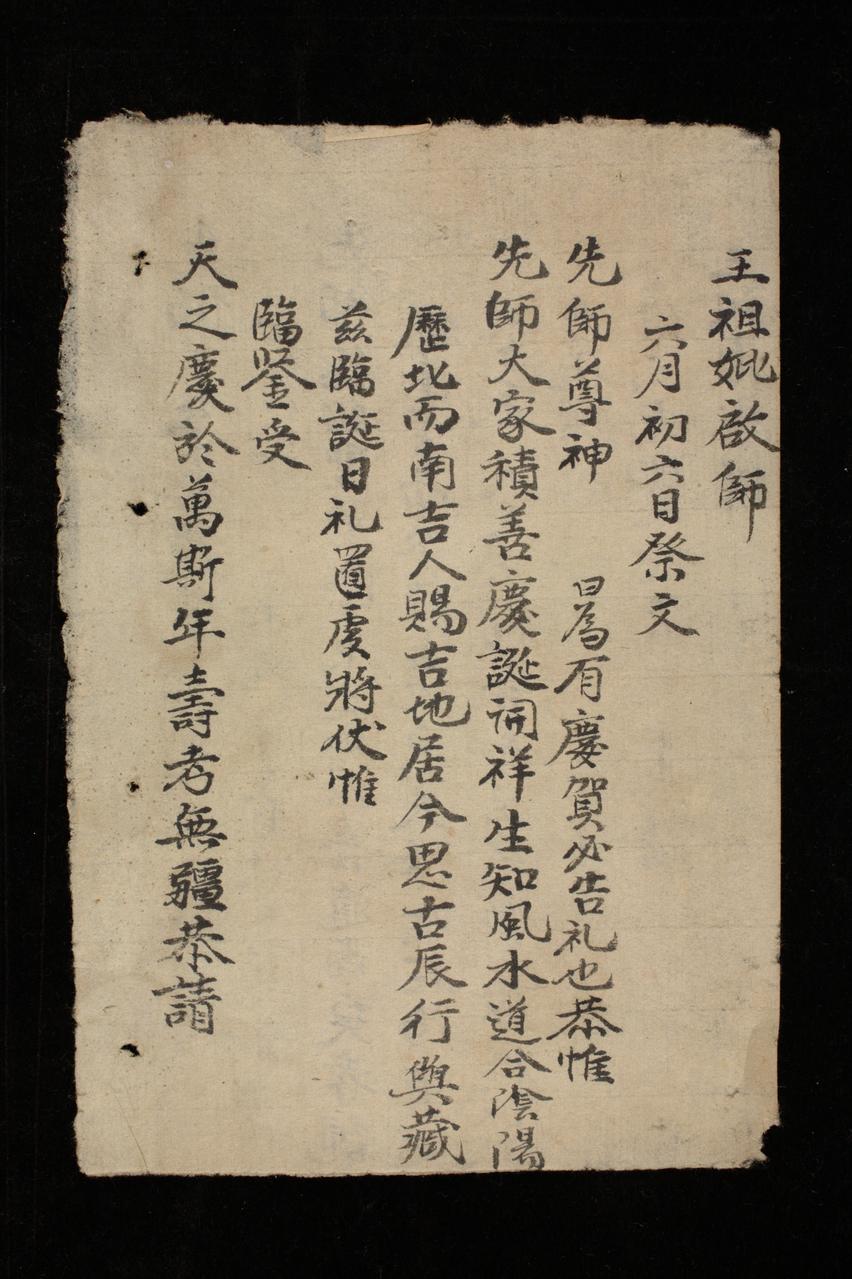 王祖妣啟師
六月初六日祭文
先師尊神 曰為有慶賀必告礼也恭惟
先師大家積善慶誕詞祥生知風水道合陰陽
歷北而南吉人賜吉地居今思古辰行與藏
兹臨誕日礼置虔將伏惟
臨鉴受
天之慶於萬斯年壽考無疆恭請